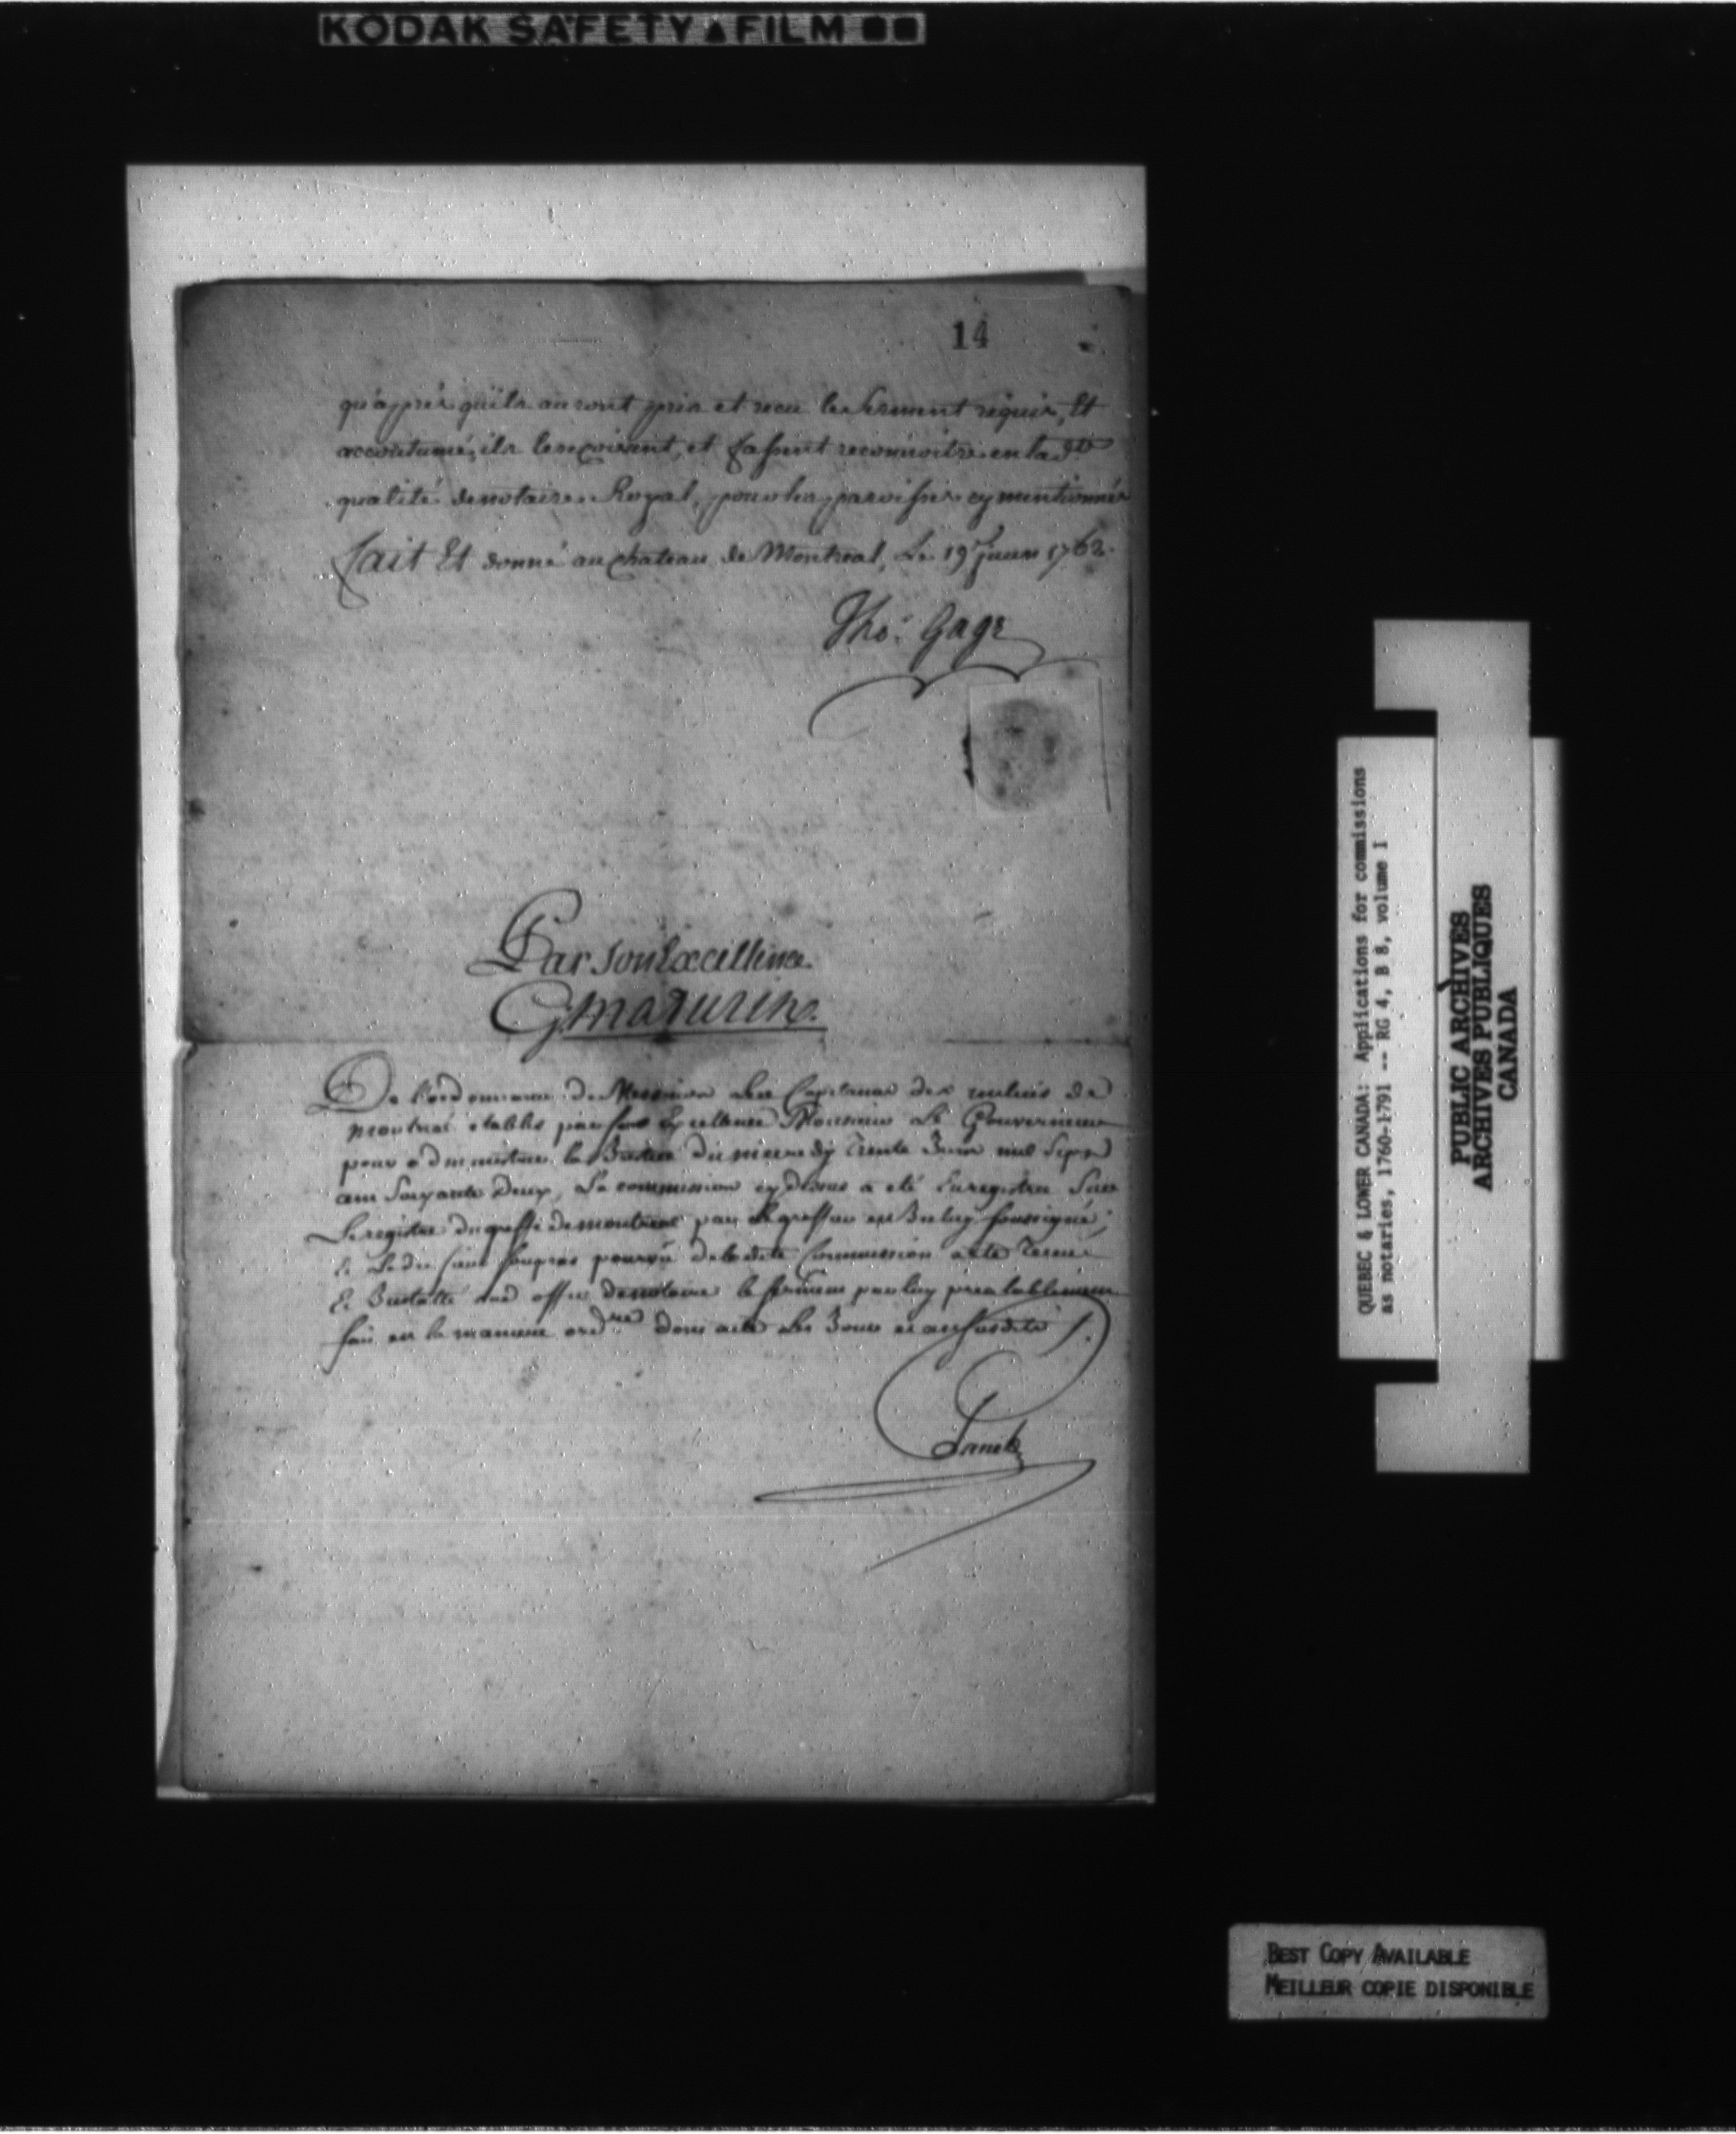 KODAK SAFETY FILM
14
qu'apprés qu'ils auront pris et recu le serment requis, Et
accoutumé, ils le reçoivent, et fassent reconnoitre en lad.te
qualité de notaire Royal, pour les paroisses cy mentionnés
fait Et donné au chateau de Montreal, Le 19 juin 1762.
Tho.s Gage
Par son Excellence
G. Maturin.
De l'ordonnance de Messieurs Les Capitaines des milices de
montreal etablis par son Excellence Monsieur Le Gouverneur
pour administrer la Justice du mercredy Trente Juin mil Sept
cent Soixante Deux, La commission cy dessus a été Enregistrée Sur
Le registre du greffe de montreal par le greffier en Iceluy soussigné,
Et Ledit Sieur pourvu de ladite Commission a été
Et Installé aud office de notaire le serment par luy préalablement
fait en la maniere ord.re dont acte Les Jour et an susdits
Panet
QUEBEC & LOWER CANADA: Applications for commissions
as notaries, 1760-1791 -- RG 4, B 8, volume 1
PUBLIC ARCHIVES
ARCHIVES PUBLIQUES
CANADA
BEST COPY AVAILABLE
MEILLEUR COPIE DISPONIBLE